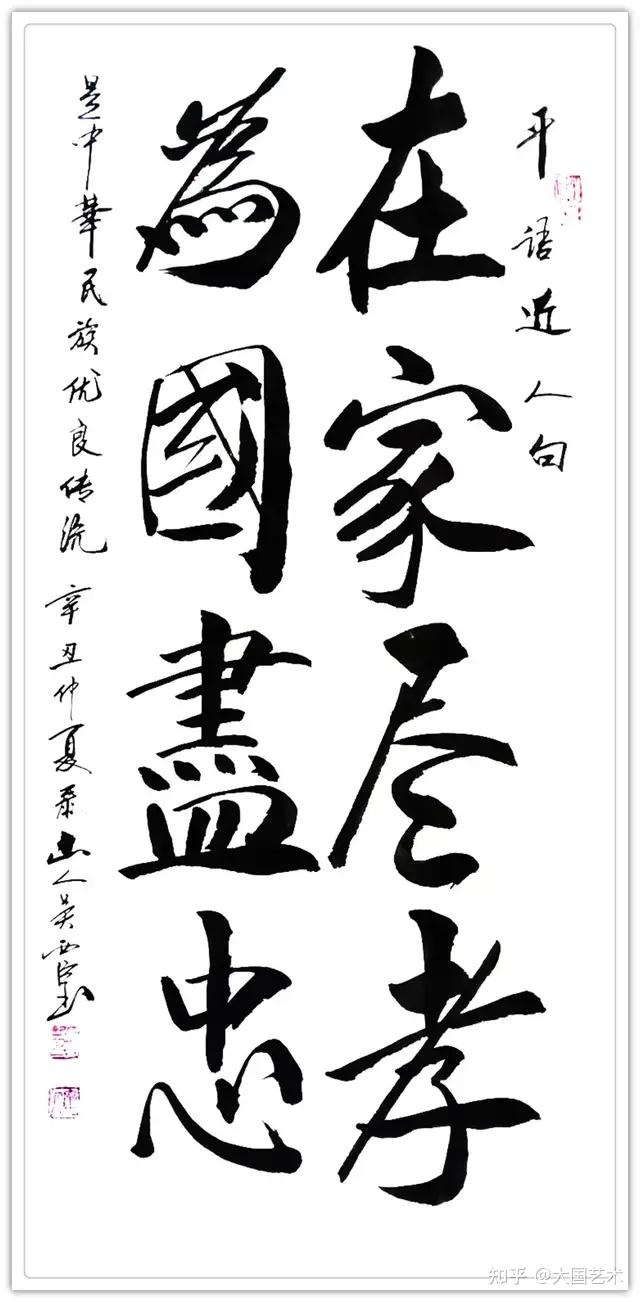 平语近人句
在家尽孝
為國盡忠
是中華民族优良传统 辛丑仲夏泰山人吴
知乎 @大国艺术